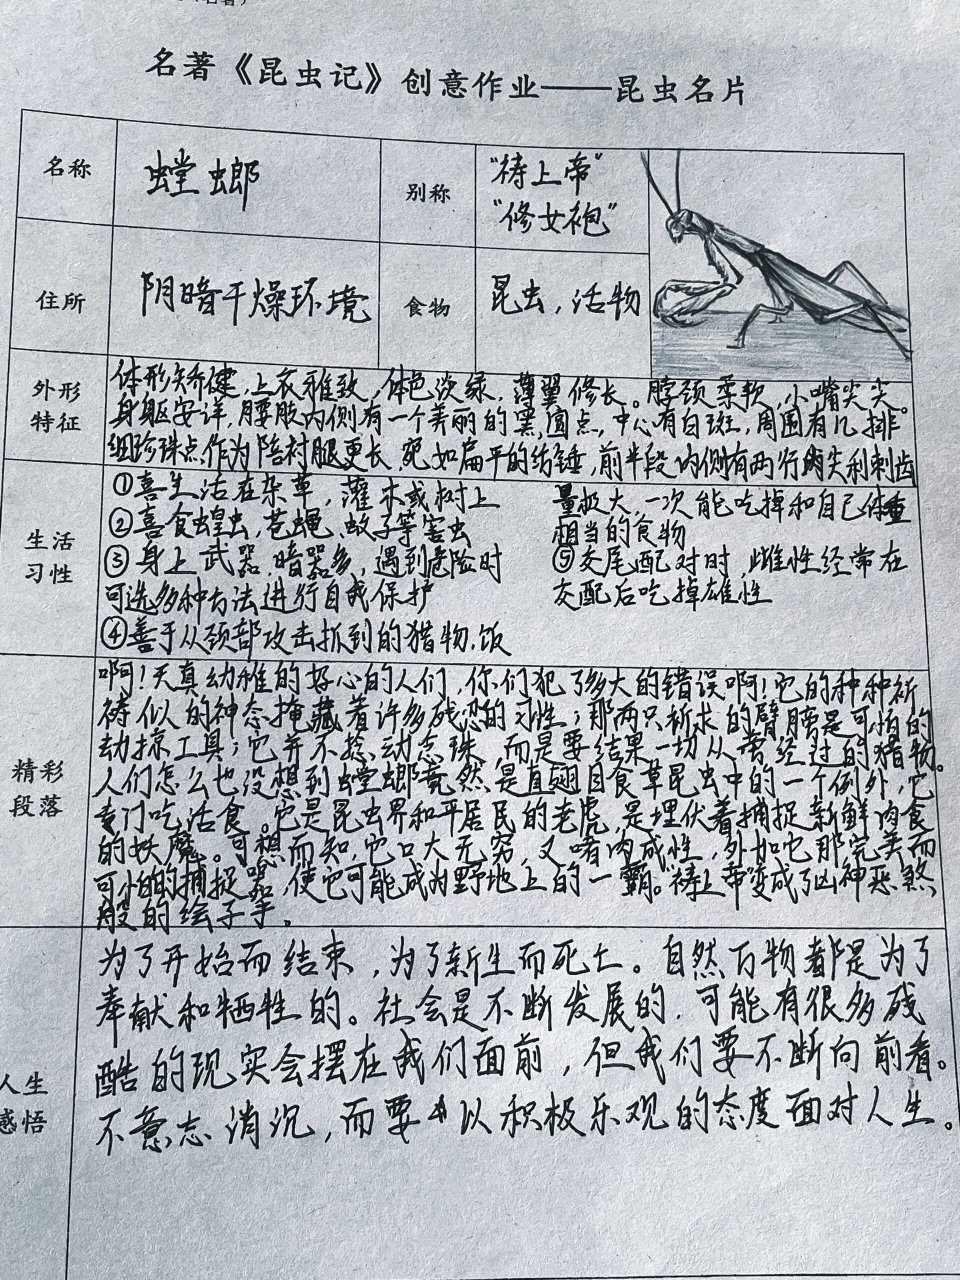 名著《昆虫记》创意作业——昆虫名片
名称
螳螂
别称
“祷上帝”
“修女袍”
住所
阴暗干燥环境
食物
昆虫，活物
外形
特征
体形矫健，上衣雅致，体色淡绿，薄翼修长。脖颈柔软，小嘴尖尖。
身躯安详，腰肢内侧有一个美丽的黑圆点，中心有白斑，周围有几排
细珍珠点作为陪衬腿更长，宛如扁平的纺锤，前半段内侧有两行尖利刺齿
生活
习性
①喜生活在杂草，灌木或树上
②喜食蝗虫，苍蝇，蚊子等害虫
③身上武器，暗器多，遇到危险时
可选多种方法进行自我保护
④善于从颈部攻击抓到的猎物，饭
量极大，一次能吃掉和自己体重
相当的食物
⑤交尾配对时，雌性经常在
交配后吃掉雄性
精彩
段落
啊！天真幼稚的好心的人们，你们犯了多大的错误啊！它的种种祈
祷似的神态掩藏着许多残忍的习性；那两只祈求的臂膀是可怕的
劫掠工具；它并不捻动念珠，而是要结果一切从旁经过的猎物。
人们怎么也没想到螳螂竟然是直翅目食草昆虫中的一个例外，它
专门吃活食。它是昆虫界和平居民的老虎，是埋伏着捕捉新鲜肉食
的妖魔。可想而知，它口大无穷，又嗜肉成性，外加它那完美而
可怕的捕捉器，使它可能成为野地上的一霸。“祷上帝”变成了凶神恶煞
般的刽子手。
人生
感悟
为了开始而结束，为了新生而死亡。自然万物都是为了
奉献和牺牲的。社会是不断发展的，可能有很多残
酷的现实会摆在我们面前，但我们要不断向前看。
不意志消沉，而要以积极乐观的态度面对人生。